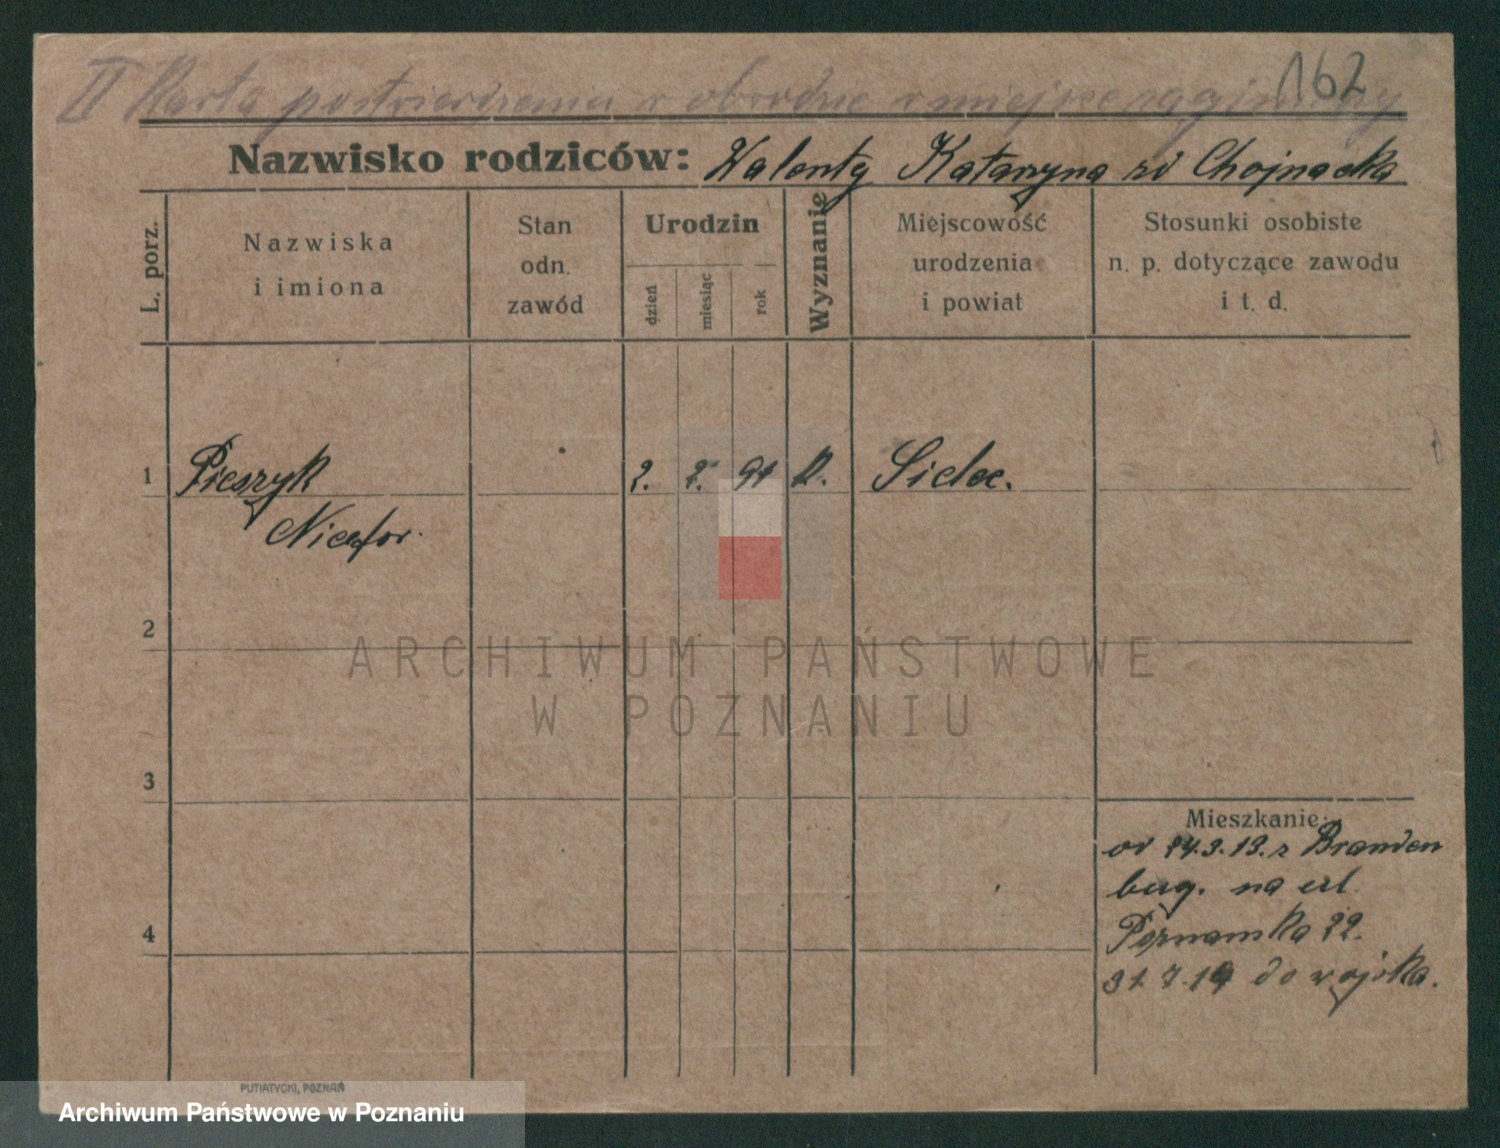 162
II Karta postwierdzenia o obrodzie w miejsce zaginiony
Nazwisko rodziców: Walenty Katarzyna zd Chojnacka
L. porz.
Nazwiska
i imiona
Stan
odn.
zawód
Urodzin
dzień
miesiąc
rok
Wyznanie
Miejscowość
urodzenia
i powiat
Stosunki osobiste
n. p. dotyczące zawodu
i t. d.
1 Pieszyk 2. 2. 91 k. Sielec.
Nicefor.
2
3
4
Mieszkanie:
od 14.3.13. z Branden
burg. na ul.
Poznanska 22.
31.7.19 do wojska.
PUTIATYCKI, POZNAŃ
ARCHIWUM PAŃSTWOWE
W POZNANIU
Archiwum Państwowe w Poznaniu